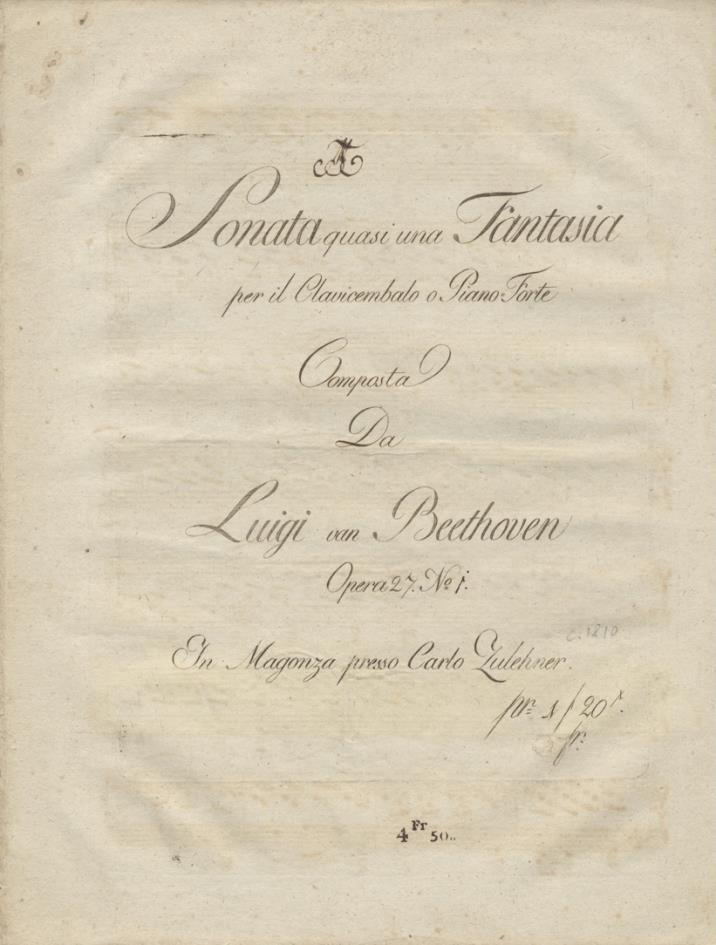 Sonata quasi una Fantasia
per il Clavicembalo o Piano-Forte
Composta
Da
Luigi van Beethoven
Opera 27. No 1.
c. 1810
In Magonza presso Carlo Zulehner.
pr. 1 f 20 x.
fr.
4 Fr 50..